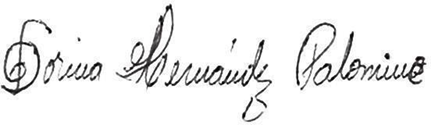 Dorina Hernández Palomino